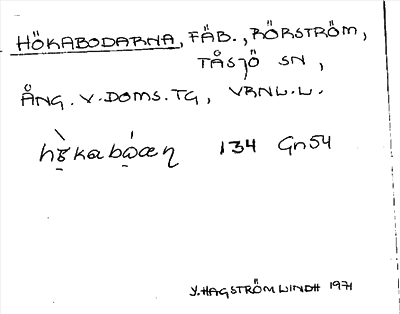 HÖKABODARNA, FÄB., RÖRSTRÖM,
TÅSJÖ SN,
ÅNG. V. DOMS. TG, VRNL.L.
134 Gn54
Y. HAGSTRÖM LINDH 1971